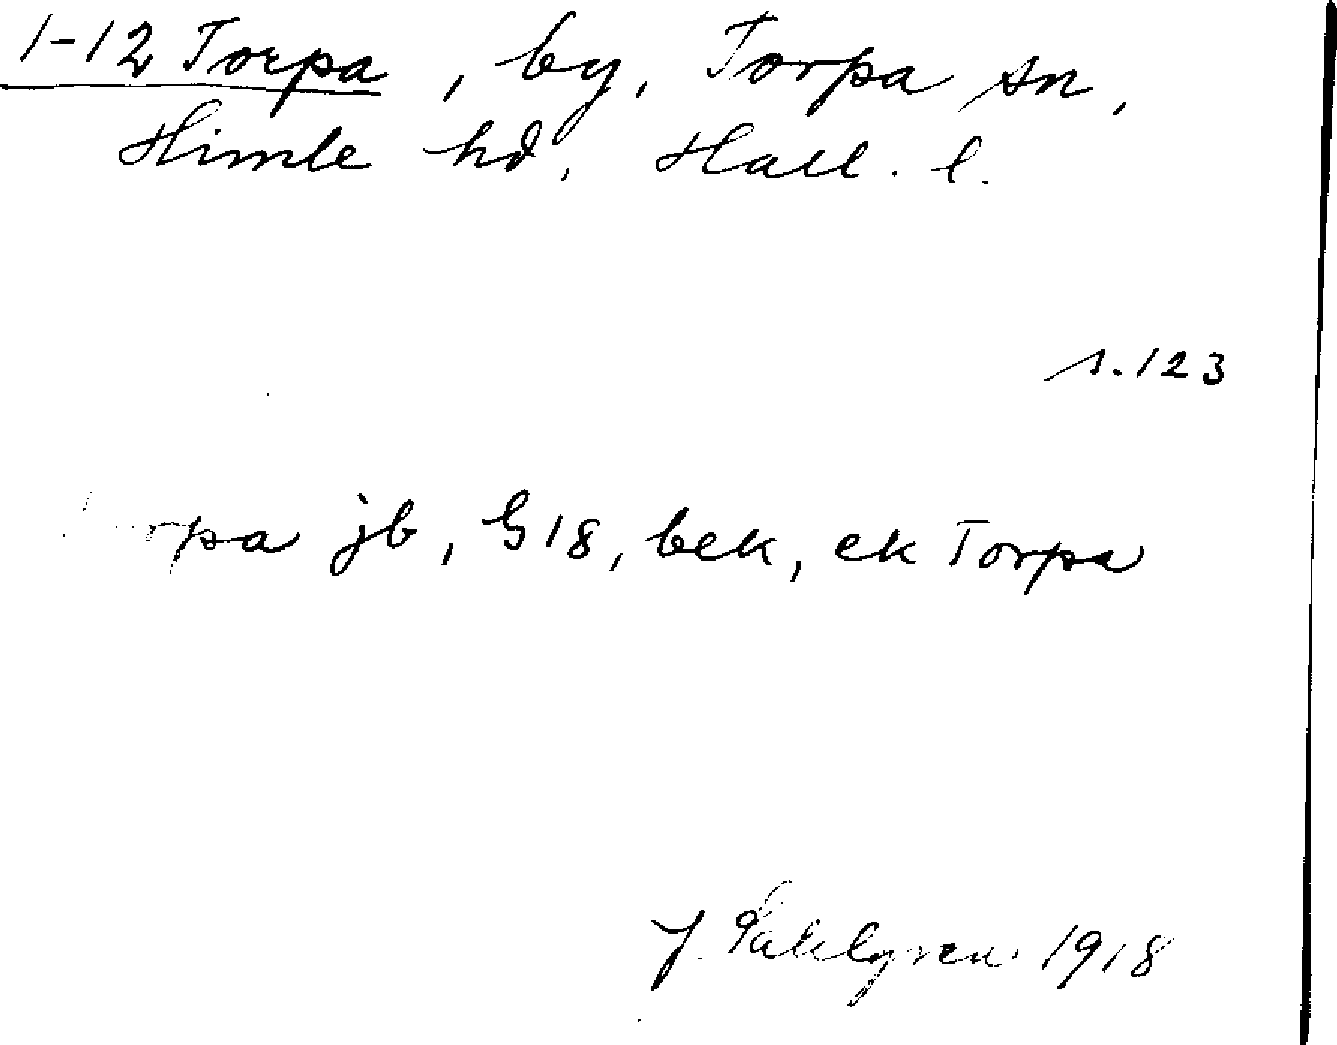 1-12 Torpa, by, Torpa sn,
Himle hd, Hall. l.
s. 123
rpa jb, G 18, bek, ek Torpa
J. Sahlgren 1918